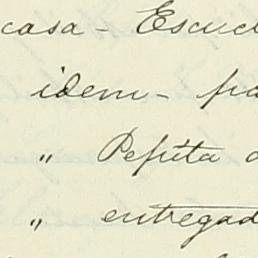 casa - Escuel
idem - pa
" Pepita d
" entregad